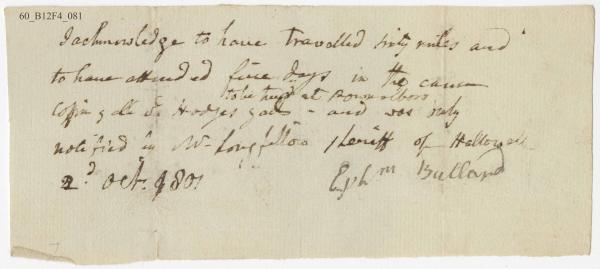 60_B12F4_081
I acknowledge to have travelled sixty miles and
to have attended five days in the cause
to be tried at Pownalboro
Coffin & all Vs Hodges & als - and was only
notified by Mr Longfellow Sheriff of Hallowell
2d Oct. 1801
Ephm Bullard